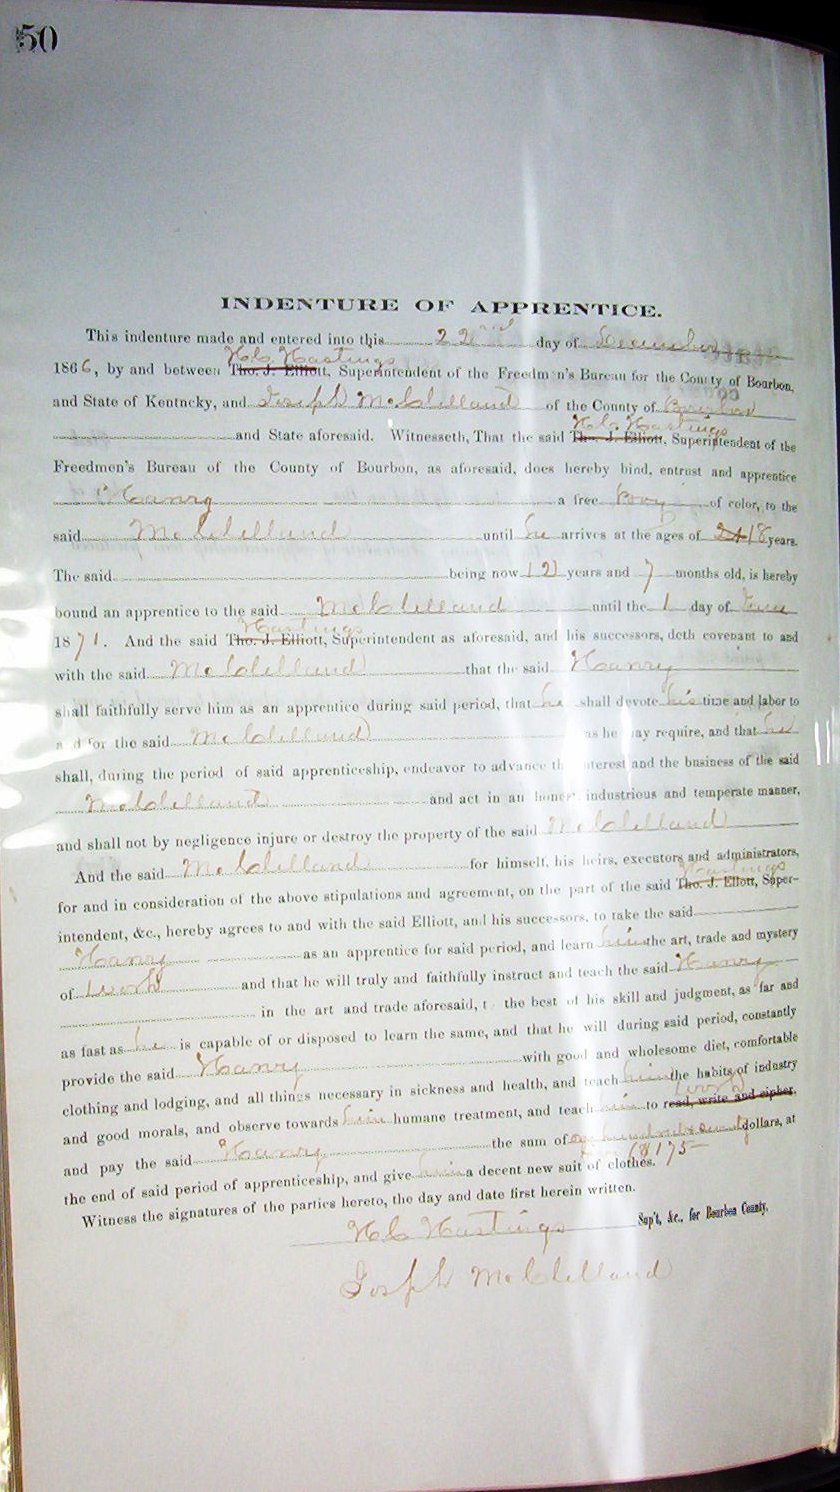 50
INDENTURE OF APPRENTICE.
This indenture made and entered into this 22nd day of December
H. C. Hastings
1866, by and between Tho. J. Elliott, Superintendent of the Freedmen's Bureau for the County of Bourbon,
and State of Kentucky, and Joseph McClelland of the County of Bourbon
H. C. Hastings
and State aforesaid. Witnesseth, That the said Tho. J. Elliott, Superintendent of the
Freedmen's Bureau of the County of Bourbon, as aforesaid, does hereby bind, entrust and apprentice
Hanry a free Boy of color, to the
said McClelland until he arrives at the ages of 21 18 years.
The said being now 12 years and 7 months old, is hereby
bound an apprentice to the said McClelland until the 1 day of June
Hastings
1871. And the said Tho. J. Elliott, Superintendent as aforesaid, and his successors, doth covenant to and
with the said McClelland that the said Hanry
shall faithfully serve him as an apprentice during said period, that he shall devote his time and labor to
and for the said McClelland as he may require, and that he
shall, during the period of said apprenticeship, endeavor to advance the interest and the business of the said
McClelland and act in an honest industrious and temperate manner,
and shall not by negligence injure or destroy the property of the said McClelland
And the said McClelland for himself, his heirs, executors and administrators,
Hastings
for and in consideration of the above stipulations and agreement, on the part of the said Tho. J. Ellott, Super-
intendent, &c., hereby agrees to and with the said Elliott, and his successors, to take the said
Hanry as an apprentice for said period, and learn him the art, trade and mystery
of work and that he will truly and faithfully instruct and teach the said Hanry
in the art and trade aforesaid, t the best of his skill and judgment, as far and
as fast as he is capable of or disposed to learn the same, and that he will during said period, constantly
provide the said Hanry with good and wholesome diet, comfortable
clothing and lodging, and all things necessary in sickness and health, and teach him the habits of industry
work
and good morals, and observe towards him humane treatment, and teach him to read, write and cipher,
and pay the said Hanry the sum of one hundred & seventy dollars, at
five ($175-
the end of said period of apprenticeship, and give him a decent new suit of clothes.
Witness the signatures of the parties hereto, the day and date first herein written.
H C Hastings Sup't, &c., for Bourbon County.
Josph McClelland